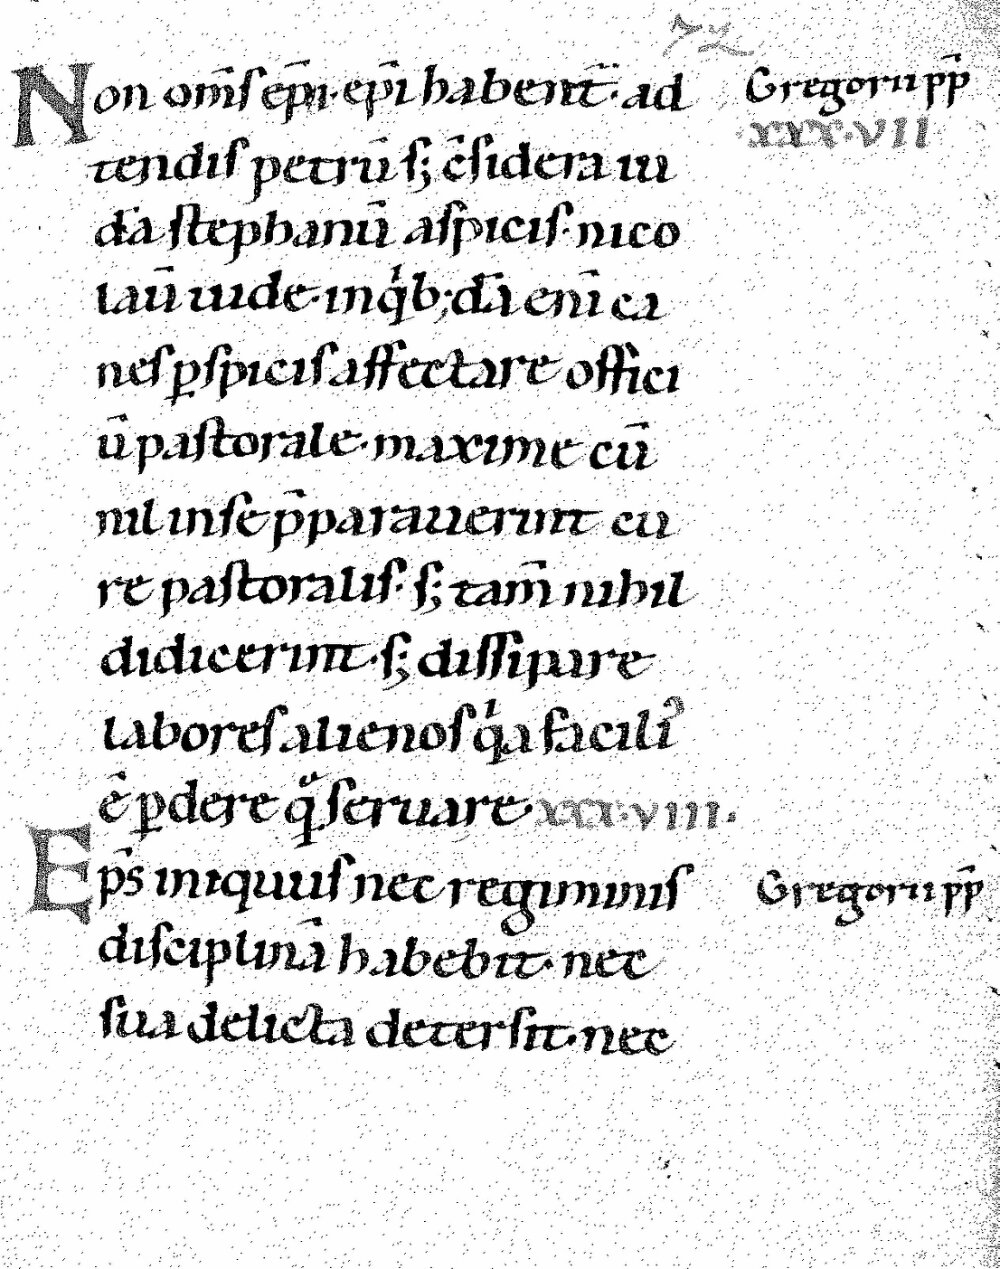 72
Non om̅ſ ep̅i · ep̅i habent̅ · ad Gregorii p̅p̅
xxx·vii
tendiſ petru̅ ſ; c̅ſidera iu
da ſtephanu̅ aſpiciſ · nico
lau̅ uide · inqͥb; da̅ eni̅ ca
neſ ꝑſpiciſ affectare offici
u̅ paſtorale · maxime cu̅
nil in ſe p̅parauerint cu
re paſtoraliſ · ſ; tam̅ nihil
didicerint · ſ; diſſipare
laboreſ alienoſ qͥa faciliꝰ
e̅ ꝑdere qͣ̅ ſeruare · xxx·viii ·
Ep̅s iniquuſ nec regiminiſ Gregorii p̅p̅
diſciplina̅ habebit · nec
ſua delicta deterſit · nec